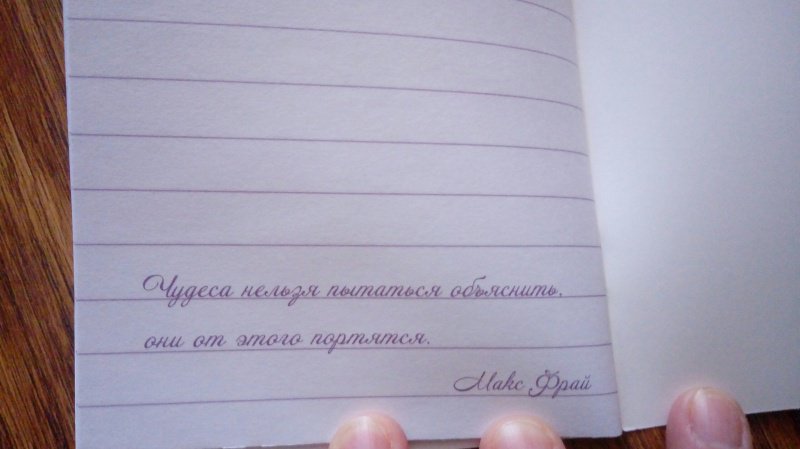 Чудеса нельзя пытаться объяснить,
они от этого портятся.
Макс Фрай